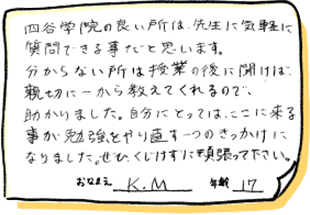 四谷学院の良い所は、先生に気軽に
質問できる事だと思います。
分からない所は授業の後に聞けば、
親切に一から教えてくれるので、
助かりました。自分にとっては、ここに来る
事が勉強をやり直す一つのきっかけに
なりました。ぜひ、くじけずに頑張って下さい。
おなまえ K.M 年齢 17